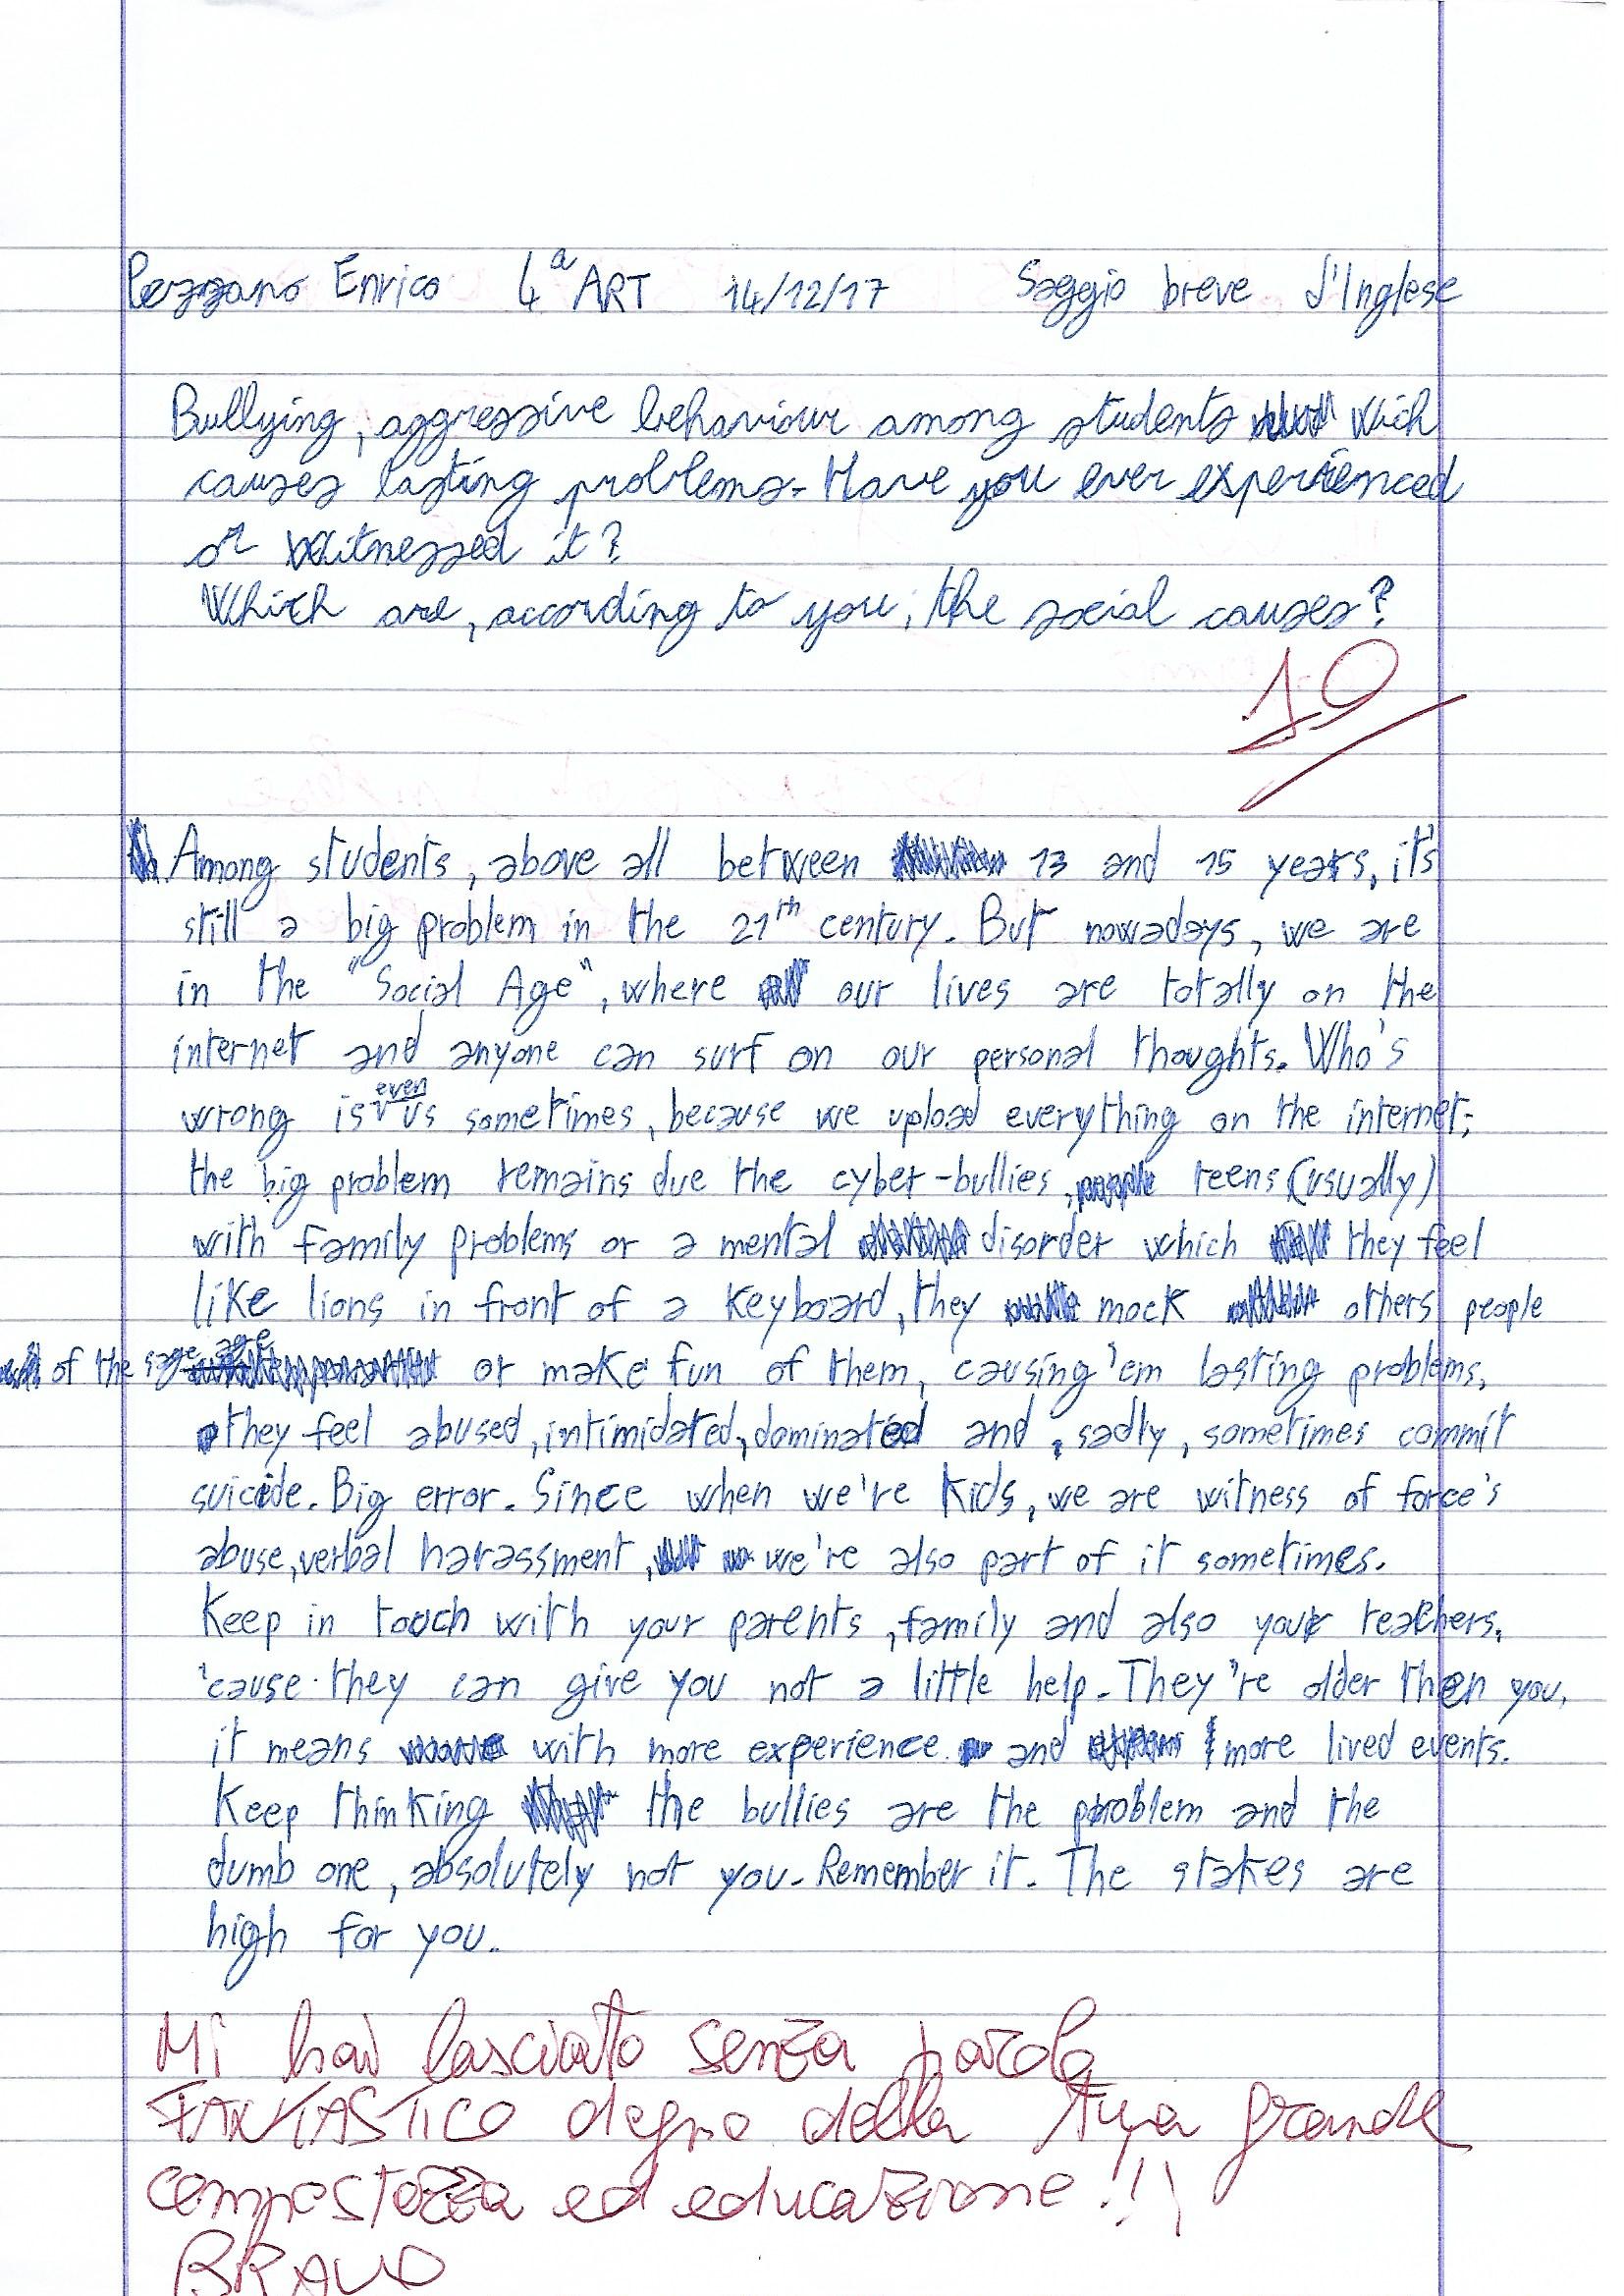 Pezzano Enrico 4ª ART 14/12/17 Saggio breve d'Inglese
Bullying, aggressive behaviour among students wich
causes lasting problems. Have you ever experienced
or witnessed it?
Which are, according to you, the social causes?
10
Among students, above all between 13 and 15 years, it's
still a big problem in the 21th century. But nowadays, we are
in the "Social Age", where our lives are totally on the
internet and anyone can surf on our personal thoughts. Who's
wrong is even us sometimes, because we upload everything on the internet;
the big problem remains due the cyber-bullies, teens (usually)
with family problems or a mental disorder which they feel
like lions in front of a keyboard, they mock others people
of the same age or make fun of them, causing 'em lasting problems,
they feel abused, intimidated, dominated and, sadly, sometimes commit
suicide. Big error. Since when we're kids, we are witness of force's
abuse, verbal harassment, we're also part of it sometimes.
Keep in touch with your parents, family and also your teachers,
'cause they can give you not a little help. They're older then you,
it means with more experience and more lived events.
Keep thinking the bullies are the problem and the
dumb one, absolutely not you. Remember it. The stakes are
high for you.
Mi hai lasciato senza parole
FANTASTICO degno della tua grande
compostezza ed educazione!!!
BRAVO